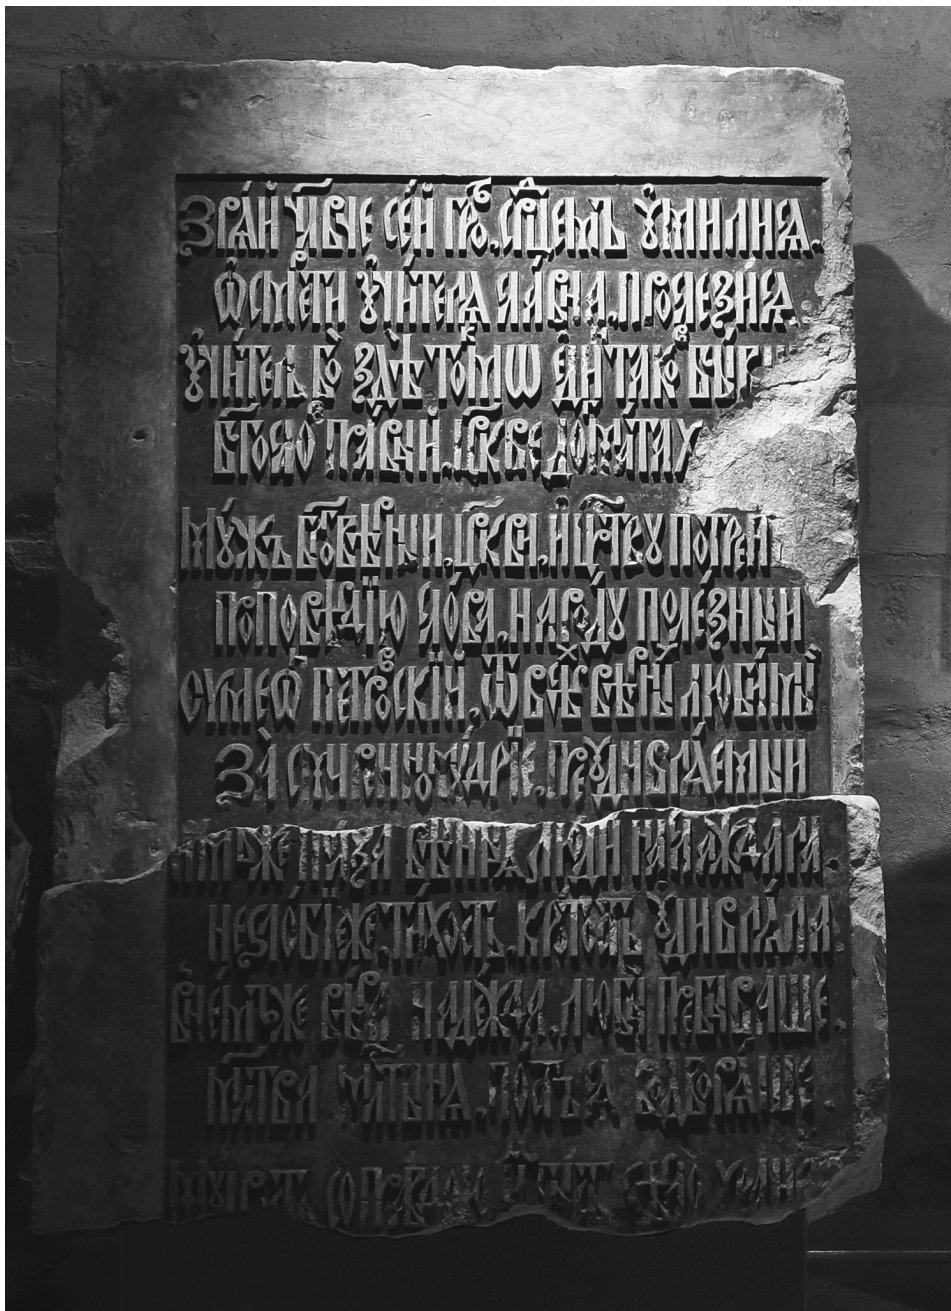 Зрѧй чл҃вче сей гробъ, срⷣцемъ ᲂумилисѧ,
Ѡ смерти ᲂучителѧ славна прослезисѧ,
Оучитель бо здѣ токмѡ единъ таковъ бы
Бг҃ословъ правый, цр҃кве догмата х
Мужъ бл҃говѣрный, цр҃кви, и црⷭ҇тву потреб
Проповѣдїю слова, народу полезный
Сѵмеѡнъ Петровскїй, ѿ всѣхъ вѣрныхъ любимый
За смиренномудрїе, преудивлѧемый
Имъже полза вѣрныѧ люди наслаждала,
Незлобїеже, тихость, кротость ᲂудивлѧла.
В немъже вѣра надежда, любы пребываше,
Мл҃тва млⷭ҇тынѧ, постъ сѧ водворѧше
Мудрость со правдою имъ бысть зѣло хране